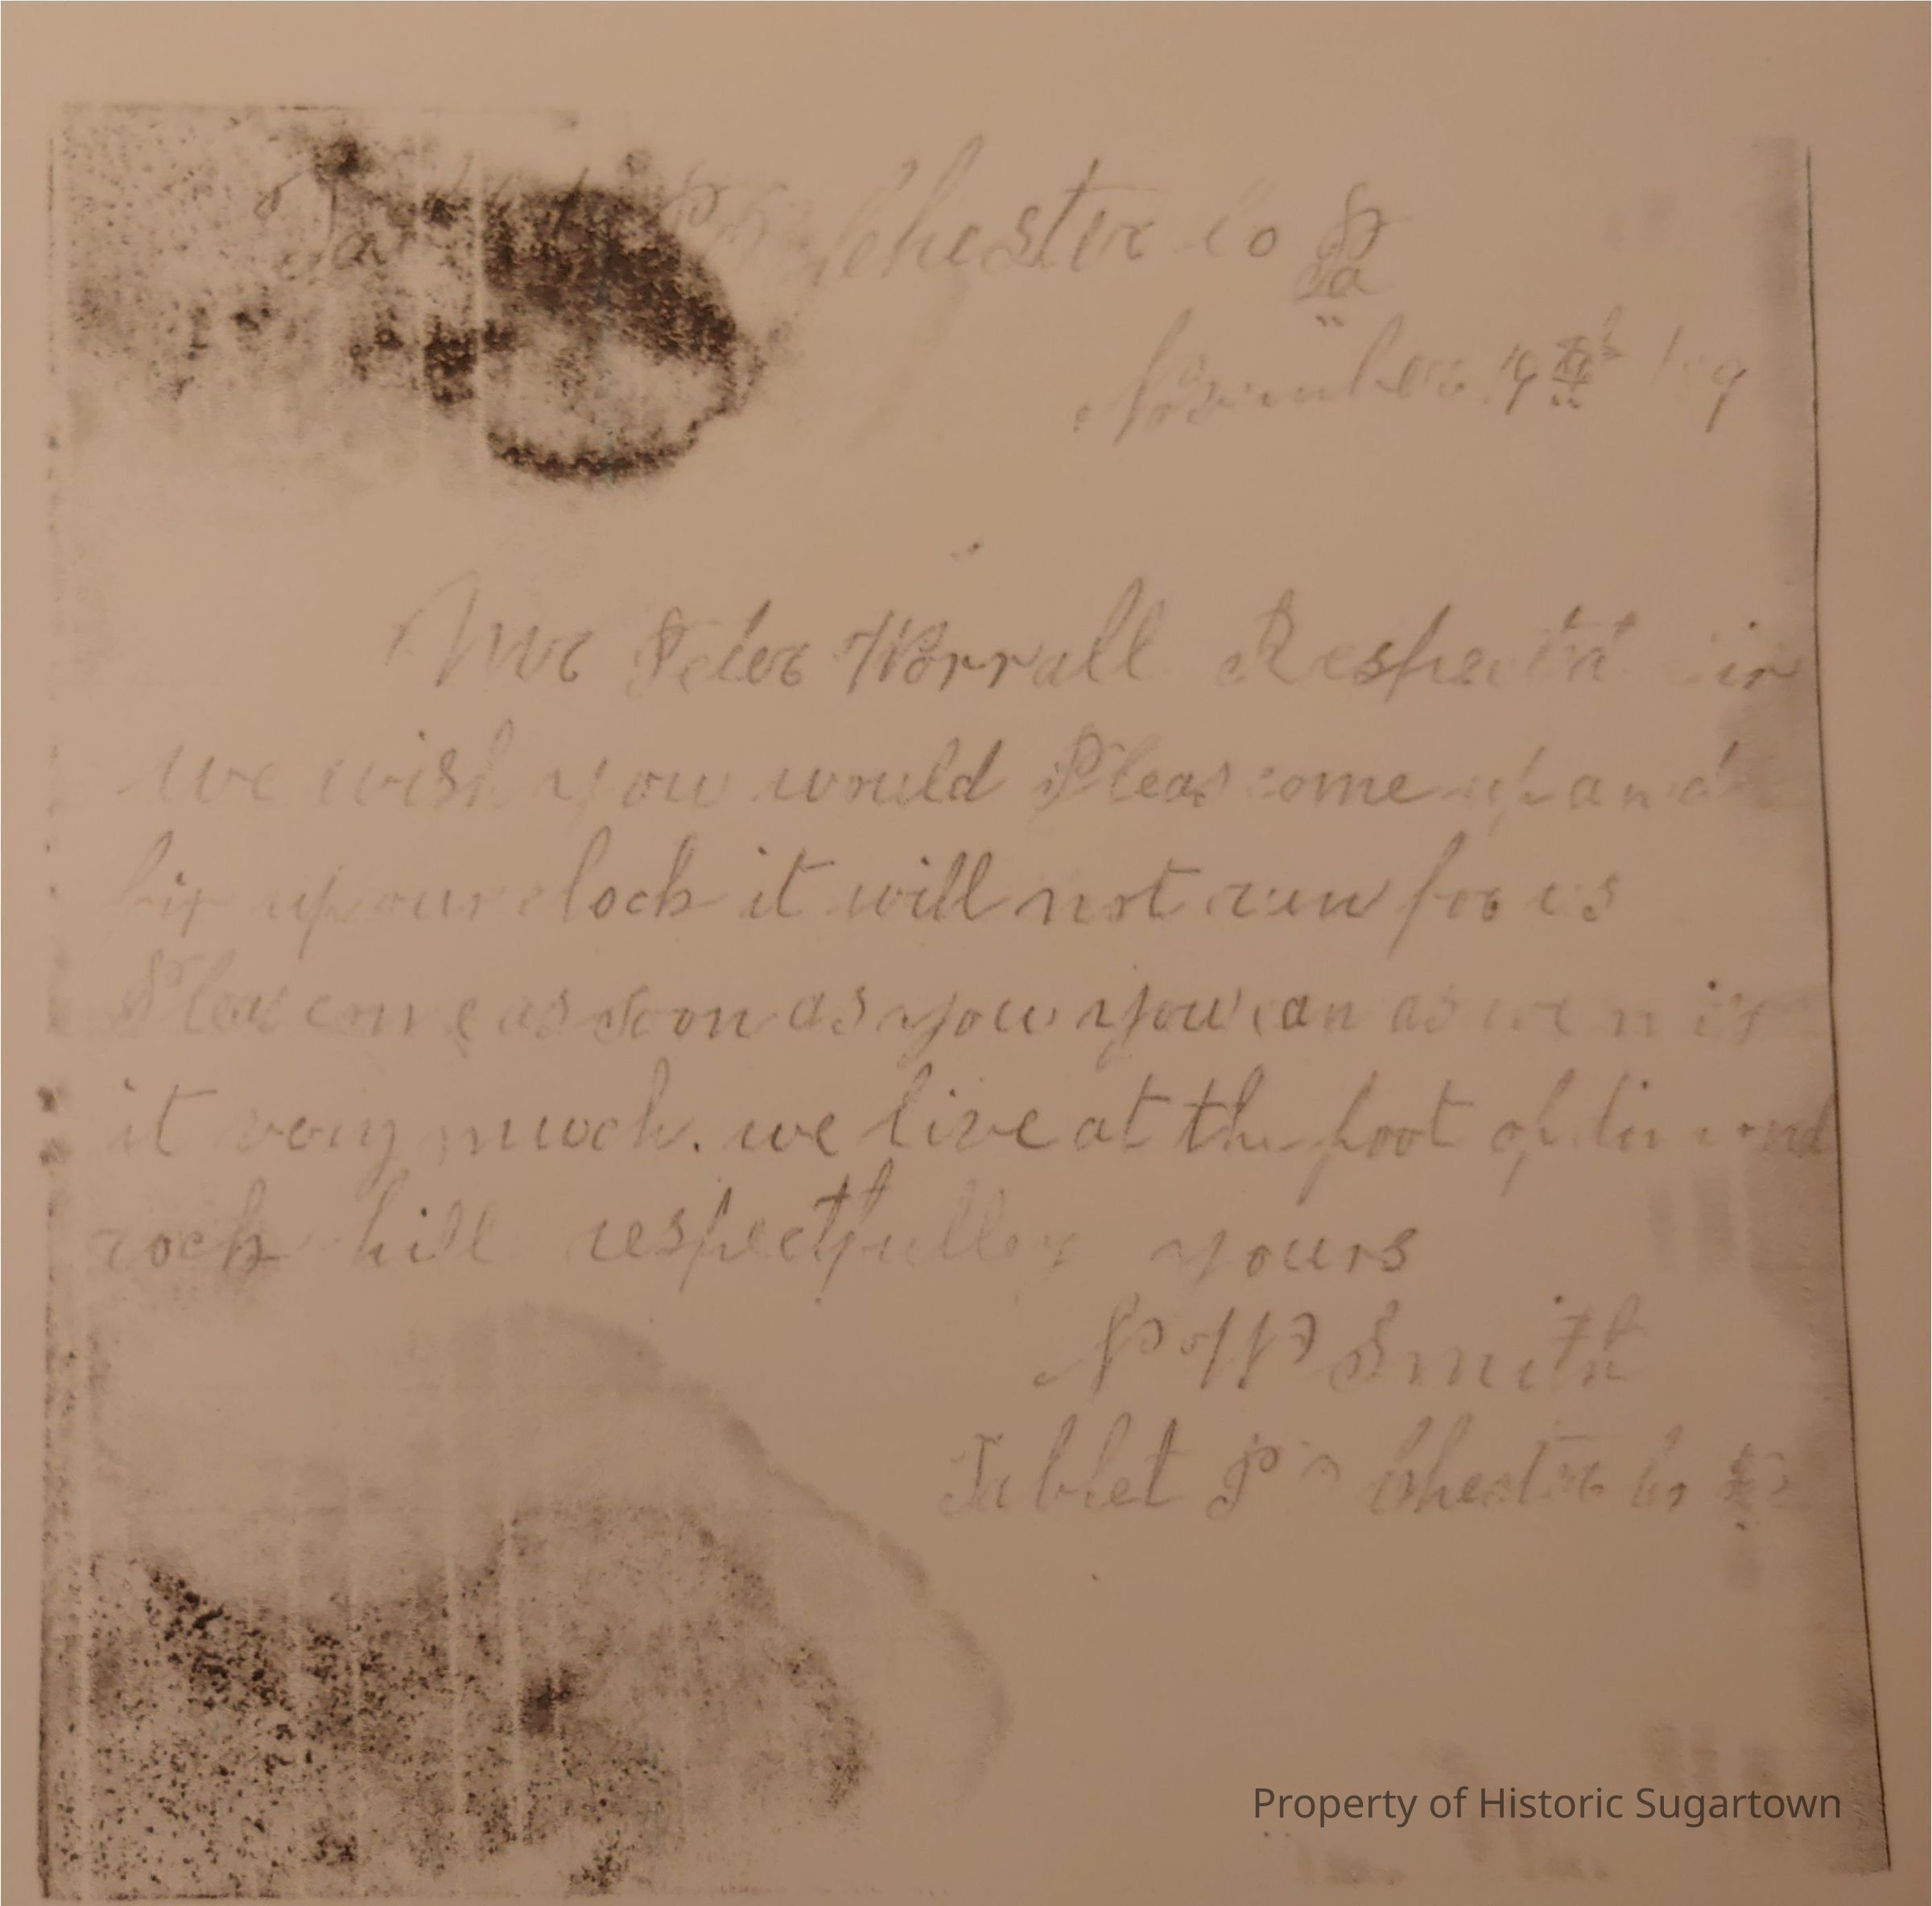 Chester Co Pa
November 19th
Mr Peter Worrall Respectd Sir
we wish you would Pleas come up and
fix up our clock it will not run for us
Pleas come as soon as you you can as we
it very much. we live at the foot of
rock hill respectfully yours
Smith
Tablet Po Chester Co Pa
Property of Historic Sugartown